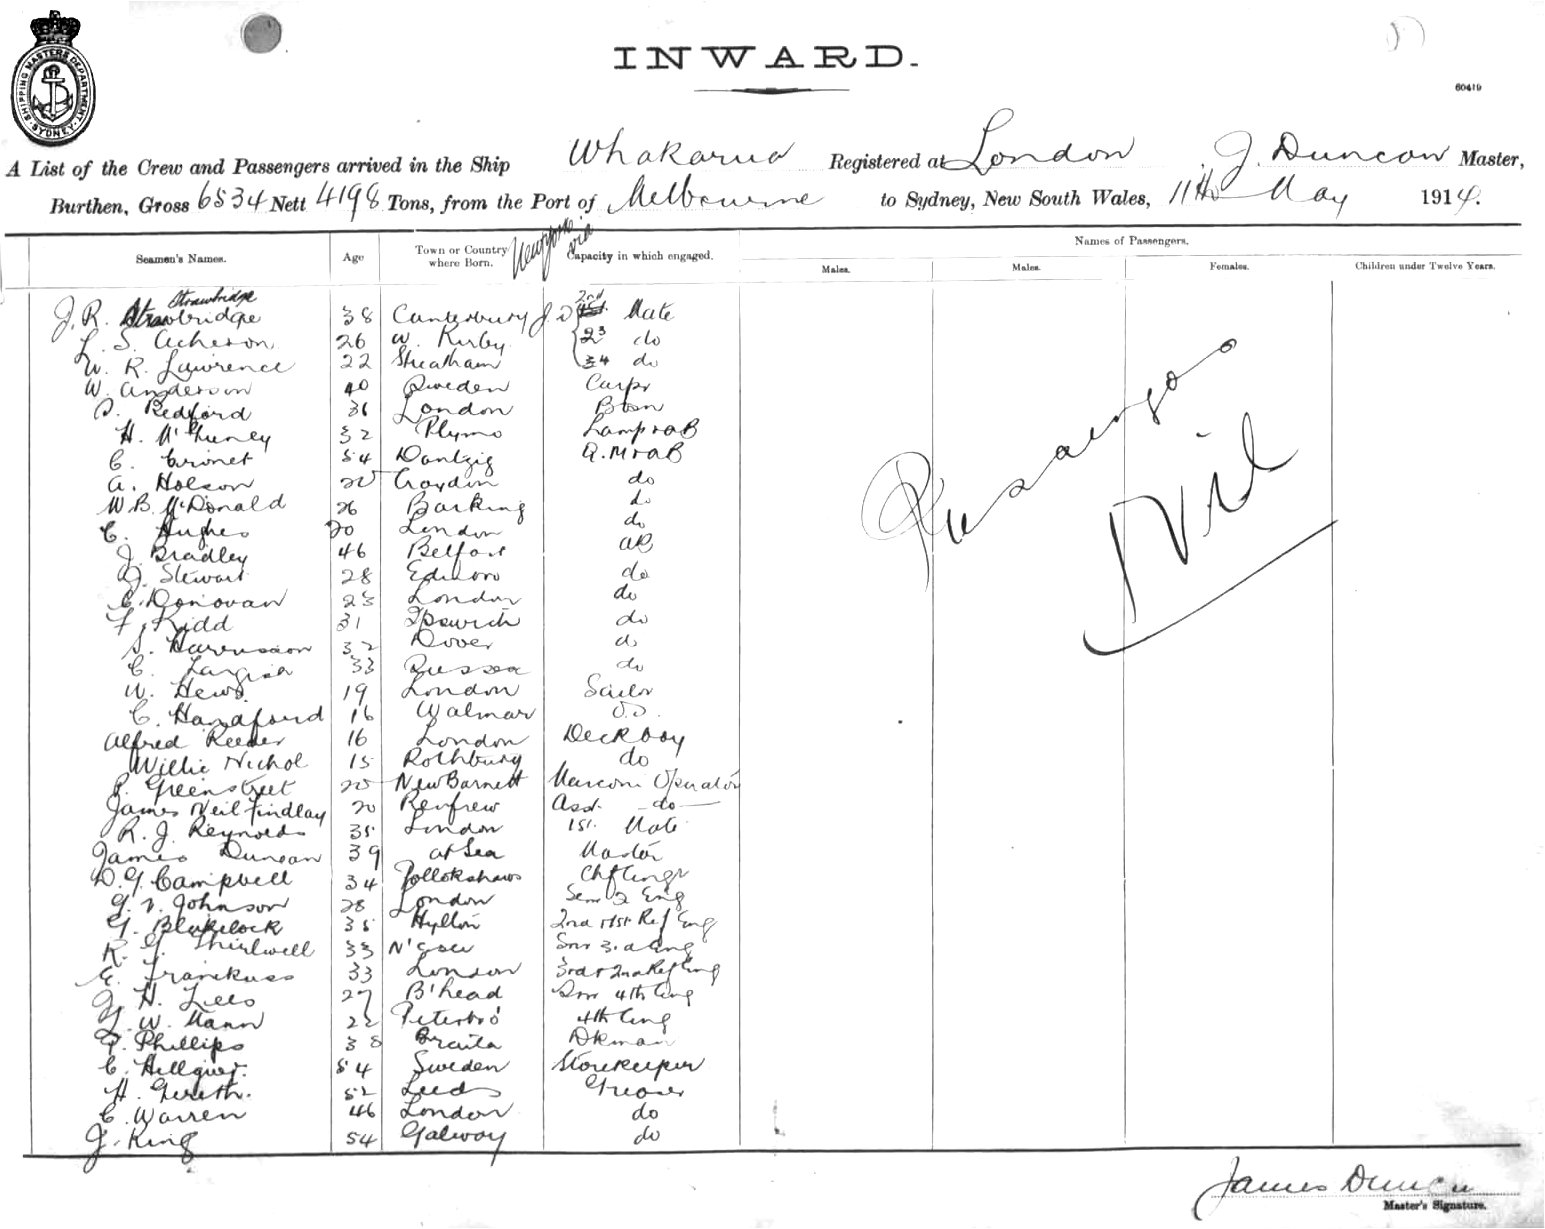 SHIPPING MASTERS DEPARTMENT SYDNEY
INWARD.
60419
A List of the Crew and Passengers arrived in the Ship Whakarua Registered at London, J. Duncan Master,
Burthen, Gross 6534 Nett 4198 Tons, from the Port of Melbourne to Sydney, New South Wales, 11th May 1914.
New York via
Seamen's Names. Age Town or Country where Born. Capacity in which engaged. Names of Passengers.
Males. Males. Females. Children under Twelve Years.
Strawbridge 2nd
J. R. Strawbridge 38 Canterbury Mate
L. S. Acheson 26 W. Kirby 2d do
W. R. Lawrence 22 Streatham 34 do
W. Anderson 40 Sweden Carpr
Bedford 36 London Bosn
H. 32 Plymo Lamps & AB
C. 54 Dantzig Q.M & AB
A. Holson Croydon do
W B McDonald 26 Barking do
C. Hughes 20 London do
J. Bradley 46 Belfast AB
Stewart 28 do
C. Donovan 23 London do
F. Kidd 31 Ipswich do
S. 32 Dover do
C. 33 Russia do
W. Hews 19 London Sailor
C. Handford 16 Walmar O.S.
Alfred Reeder 16 London Deck boy
Willie Nichol 15 Rothbury do
Greenstreet New Barnett Marconi Operator
James Neil Findlay 20 Renfrew Asst. do
R. J. Reynolds 35 London 1st. Mate
James Duncan 39 at Sea Master
D. G. Campbell 34 Pollokshaws Chf Engr
G. V. Johnson 28 London Senr 2 Eng
G. Blakelock 35 Hylton 2nd & 1st Ref Eng
R. G. Thirlwell 33 Snr 3rd Eng
E. Franckuss 33 London 3rd & 2nd Ref Eng
J. H. Lees 27 B'head Snr 4th Eng
L. W. Mann 22 Peterbro' 4th Eng
P. Phillips 38 Braila Dkman
C. Hellquist. 54 Sweden Storekeeper
H. 52 Leeds Greaser
C. Warren 46 London do
J. King 54 Galway do
Passengers
Nil
James Duncan
Master's Signature.